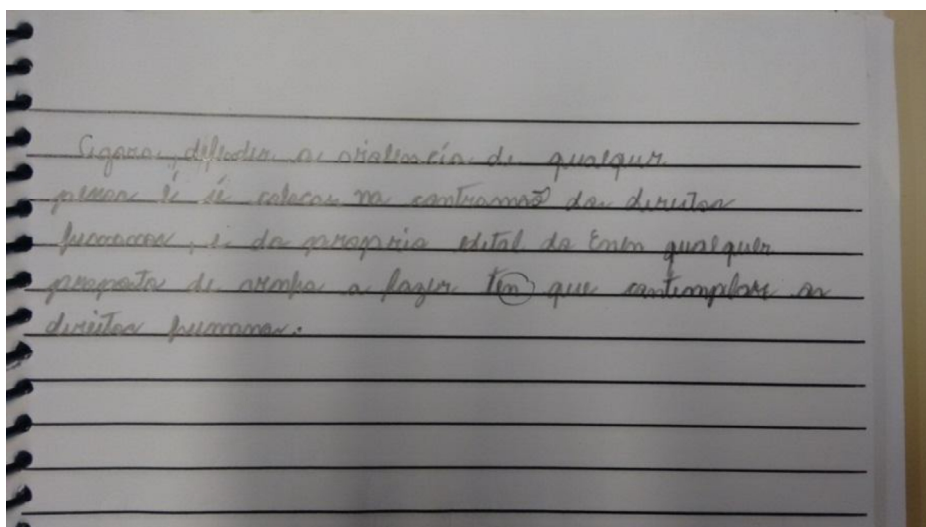 Agora, defender a violência de qualquer
pessoa é se colocar na contramão dos direitos
humanos, e do proprio edital do Enem qualquer
proposta de venha a fazer ten que contemplar os
direitos humanos.